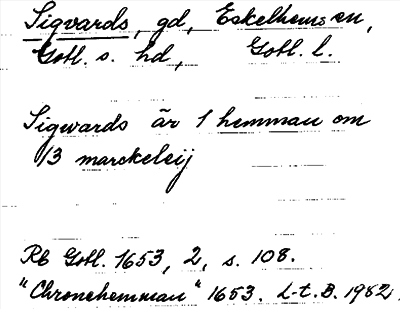 Sigvards, gd, Eskelhems sn,
Gotl. s. hd, Gotl. l.
Sigwards är 1 hemman om
13 marckeleij
Rb Gotl. 1653, 2, s. 108.
"Chronehemman" 1653. L-t. B. 1982.